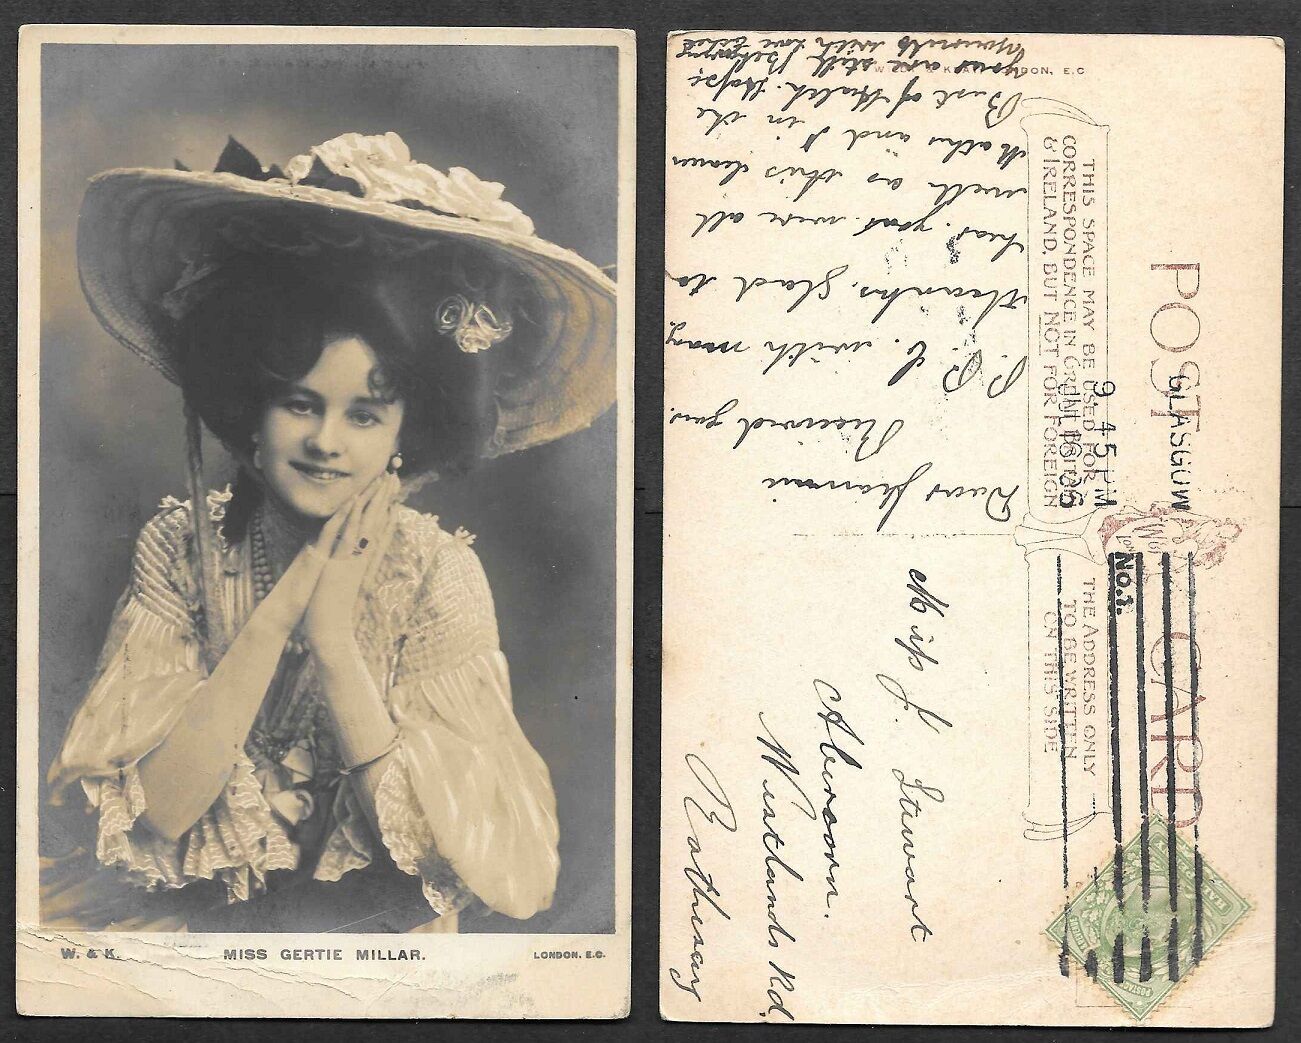 W. & K.
MISS GERTIE MILLAR.
LONDON. E.C.
POST CARD
THIS SPACE MAY BE USED FOR
CORRESPONDENCE IN GREAT BRITAIN
& IRELAND, BUT NOT FOR FOREIGN
THE ADDRESS ONLY
TO BE WRITTEN
ON THIS SIDE
GLASGOW
9 45 PM
No. 1.
HALFPENNY
Dear
Received your
P. P. C. with many
thanks, glad to
hear your were all
well as this leaves
and I in the
Best of Health. Hope
your are still
with love
Miss J. Stewart
Abercorn.
Westlands Rd,
Rothesay